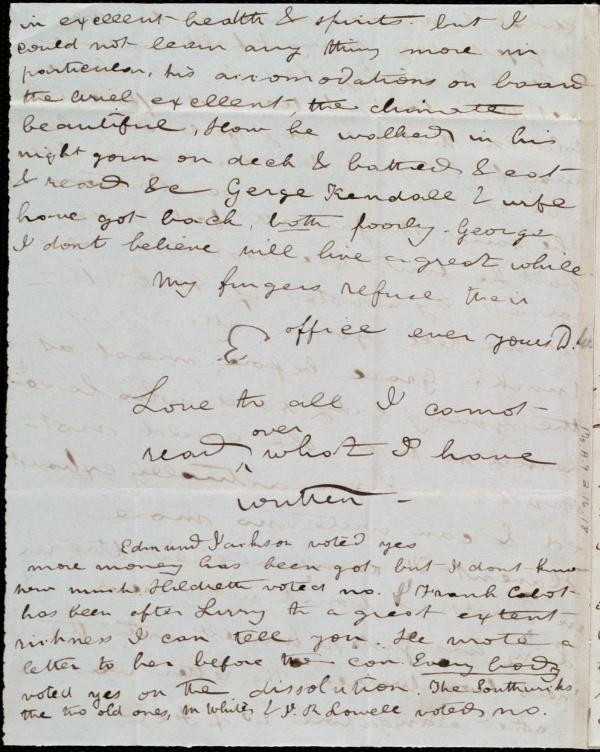 in excellent health & spirits but I
could not learn any thing more in
particular, his accomodations on board
the Ariel excellent, the climate
beautiful, How he walked in his
night gown on deck & bathed & eat
& read &c Gerge Kendall & wife
have got back, both poorly. George
I dont believe will live a great while
My fingers refuse their
office ever yours D.
Love to all I cannot
read over what I have
written -
Edmund Jackson voted yes
more money has been got but I dont know
how much. Hildreth voted no. Frank Cabot
has been after Lizzy to a great extent
richness I can tell you. He wrote a
letter to her before the con. Every body
voted yes on the dissolution. The Southwicks,
the two old ones, M White & J. R Lowell voted no.